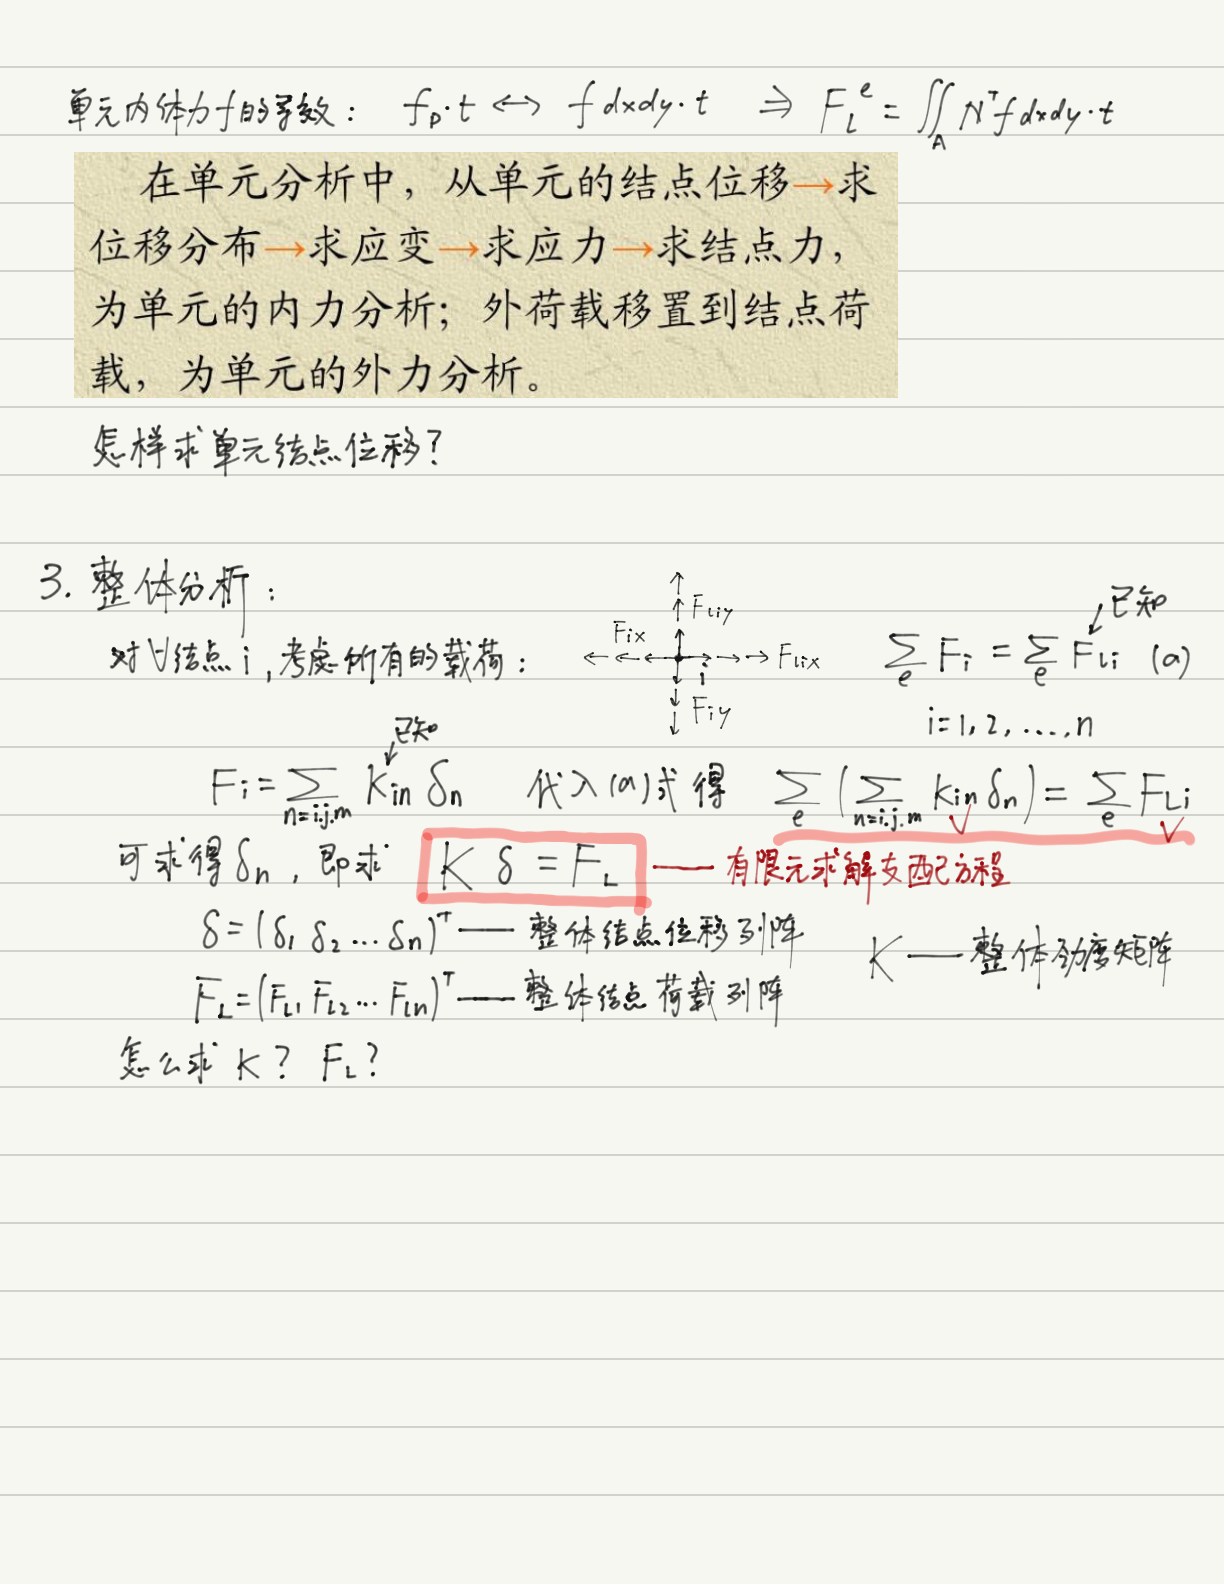 单元内体力f的等效： f_p·t ↔ f dxdy·t ⇒ F_L^e = ∬_A N^T f dxdy·t
在单元分析中，从单元的结点位移→求
位移分布→求应变→求应力→求结点力，
为单元的内力分析；外荷载移置到结点荷
载，为单元的外力分析。
怎样求单元结点位移？
3. 整体分析：
对∀结点i，考虑所有的载荷：
F_iy
F_Lix
F_ix
F_Liy
i
已知
∑_e F_i = ∑_e F_Li (a)
i=1, 2, ..., n
已知
F_i = ∑_{n=i.j.m} k_in δ_n 代入(a)式得 ∑_e (∑_{n=i.j.m} k_in δ_n) = ∑_e F_Li
可求得δ_n，即求 K δ = F_L —— 有限元求解支配方程
δ = (δ_1 δ_2 ... δ_n)^T —— 整体结点位移列阵 K —— 整体劲度矩阵
F_L = (F_L1 F_L2 ... F_Ln)^T —— 整体结点荷载列阵
怎么求 K？ F_L？